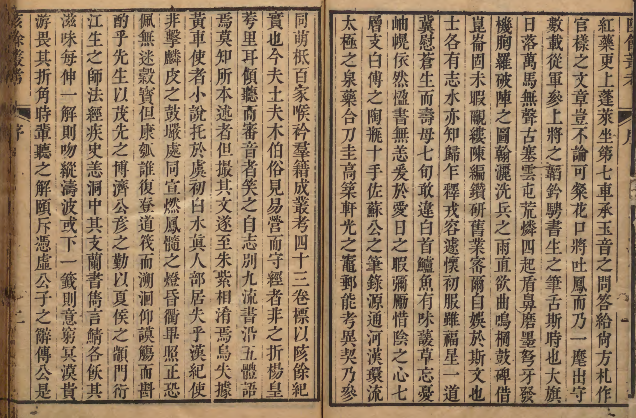 紅藥更上蓬萊坐第七車承玉音之問答給尙方札作
官樣之文章豈不論可粲花口將吐鳳而乃一麾出守
數載從軍參上將之韜鈐騁書生之筆舌斯時也大旗
日落萬馬無聲古塞雲屯荒燐四起盾鼻磨墨弩牙發
機胸羅破陣之圖翰灑洗兵之雨直欲曲鳴桐鼓碑借
崑崙固未暇覼縷陳編鑽研舊業寄爾自娛於斯文也
士各有志水亦知歸乍釋戎容遽懷初服雖福星一道
冀慰蒼生而壽母七旬敢違白首鱸魚有味護草忘憂
岫幌依然楹書無恙爰於愛日之暇彌勵惜陰之心七
層支白傅之陶甁十手佐蘇公之筆錄源通河漢環流
太極之泉藥合刀圭高築軒光之竈郵能考異契乃參
同蒴柢百家喉衿羣籍成叢考四十三卷標以陔餘紀
實也今夫土夫木伯俗見易營而守經者非之折楊皇
考里耳傾聽而審音者笑之自志別九流書沿五體語
焉莫知所本述者但撮其文遂至朱紫相淆焉烏失據
黃車使者小說托於虞初白水眞人部居失乎漢紀使
非擊麟皮之鼓嚴處同宣燃鳳髓之燈昏衢畢照正恐
佩無迷穀寶但康瓠誰復舂道筏而溯洄仰謨觴而斟
酌乎先生以茂先之博濟公彥之勤以夏侯之韻門衍
江生之師法經疾史恙洞中其支蘭書雋言鯖各飫其
滋味每伸一解則吻縱濤波或下一籤則意窮冥漠貴
游畏其折角時輩聽之解頤斥憑虛公子之辭傳公是
陔餘叢考
序
二